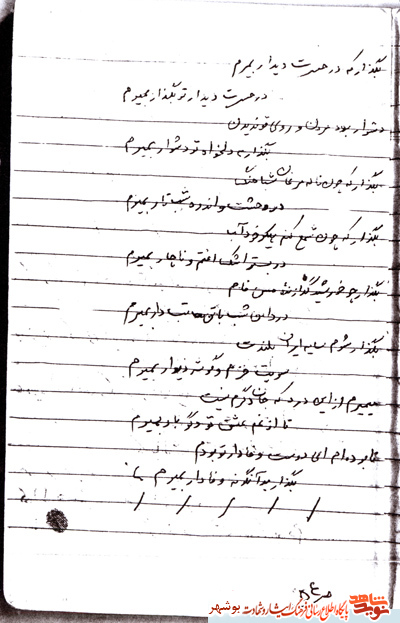 بگذار که در حسرت دیدار بمیرم
در حسرت دیدار تو بگذار بمیرم
دشوار بود مردن و روی تو ندیدن
بگذار بدلخواه تو دشوار بمیرم
بگذار که چون ناله مرغان شباهنگ
در وحشت و اندوه شب تار بمیرم
بگذار که چون شمع کنم پیکر خود آب
در بستر اشک افتم و ناچار بمیرم
بگذار چو خورشید گدازنده مس فام
در دامن شب با تن تب دار بمیرم
بگذار شوم سایه ایوان بلندت
سویت خزم و گوشه دیوار بمیرم
میمیرم از این درد که جان دگرم نیست
تا از غم عشق تو دگر بار بمیرم
تا بوده ام ای دوست وفادار تو بودم
بگذار بدآنگونه وفادار بمیرم
/ / / / /
نوید شاهد
پایگاه اطلاع رسانی فرهنگ ایثار و شهادت بوشهر